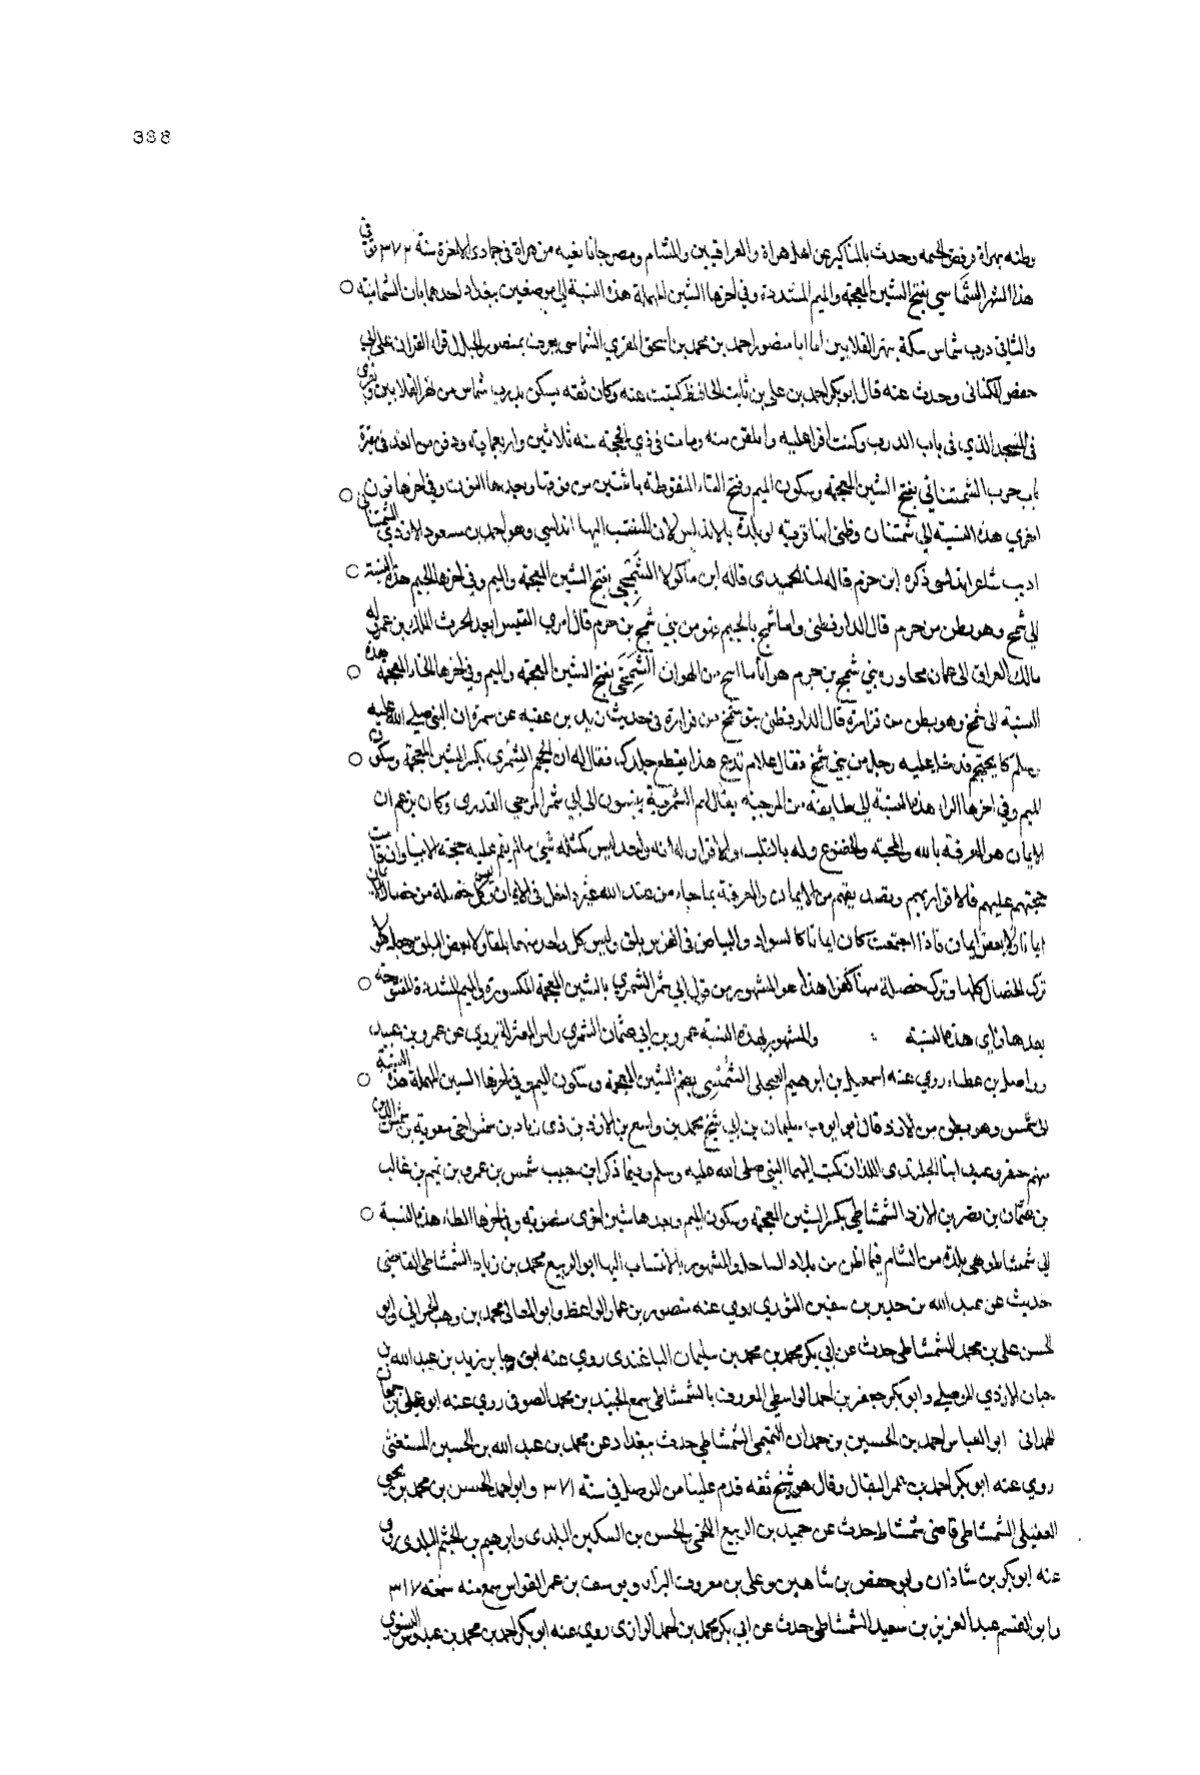 338
وطنه بهراة وحدث بالمناكير عن اهل هراة والعراقيين والشام ومصر جانا نعيه من هراة في جمادى الاخرة سنة ٣٧٣ في
هذا الشهر الشماسي بفتح الشين المعجمة والميم المشددة وفي اخرها السين المهملة هذه النسبة الى موضعين ببغداد احدهما باب الشماسية
والثاني درب شماس سكة بنهر القلايين اما ابا منصور احمد بن محمد بن اسحق المقري الشماسي يعرف بمنصور الحبال قرا القران على ابي
حفص الكتاني وحدث عنه قال ابو بكر احمد بن علي بن ثابت الحافظ كتبت عنه وكان ثقة يسكن بدرب شماس من نهر القلايين
في المسجد الذي في باب الدرب وكنت اقرا عليه واتلقن منه ومات في ذي الحجة سنة ثلاثين واربعماية ودفن من الغد في مقبرة
باب حرب الشمتناني بفتح الشين المعجمة وسكون الميم وفتح التاء المنقوطة باثنتين من فوقها وبعدها النون وفي اخرها نون
اخري هذه النسبة الي شمتنان وظني انها قرية او بلدة بالاندلس لان المنتسب اليها اندلسي وهو احمد بن مسعود الازدي الشمتناني
اديب شاعر اندلسي ذكره ابن حزم قاله لنا الحميدي قاله ابن ماكولا الشمجي بفتح الشين المعجمة والميم وفي اخرها الجيم هذه النسبة
الي شمج وهو بطن من جرم قال الدارقطني واما شمج بالجيم فهو من بني شمج بن جرم قال امرء القيس ابعد الحرث الملك بن عمرو له
مالك العراق الى عمان مجاورة بني شمج بن جرم هوانا ما اتيح من الهوان الشمخي بفتح الشين المعجمة والميم وفي اخرها الخاء المعجمة هذه
النسبة الى شمخ وهو بطن من فزارة قال الدارقطني بنو شمخ من فزارة في حديث زيد بن عقبة عن سمرة ان النبي صلى الله عليه
وسلم كان يحتجم فدخل عليه رجل من بني شمخ فقال علام تدع هذا يقطع جلدك فقال له ان الحجم الشمري بكسر الشين المعجمة وسكون
الميم وفي اخرها الراء هذه النسبة الى طايفة من المرجية يقال لهم الشمرية ينسبون الى ابي شمر المرجي القدري وكان يزعم ان
الايمان هو المعرفة بالله والمحبة والخضوع وله بالقلب والاقرار له انه واحد ليس كمثله شيء ما لم يقم عليه حجة الانبيا وان قامت
حجتهم عليهم فالاقرار بهم وتصديقهم من الايمان والمعرفة بما جاء من عند الله غير داخل في الايمان وليس كل خصلة من خصال الايمان
ايمانا ولا بعض ايمان فاذا اجتمعت كان ايمانا كالسواد والبياض في الفرس بلق وليس كل واحد منهما بلقا ولا بعض البلق وجعل
ترك الخصال كلها وترك خصلة منها كفرا هذا هو المشهور من قول ابي شمر الشمري بالشين المعجمة المكسورة والميم المشددة المفتوحة
بعدها راي هذه النسبة : والمشهور بهذه النسبة عمرو بن ابي عثمان الشمري راس المعتزلة يروي عن عمرو بن عبيد
وواصل بن عطاء روي عنه اسمعيل بن ابرهيم العجلي الشمسي بضم الشين المعجمة وسكون الميم وفي اخرها السين المهملة هذه النسبة
الى شمس وهو بطن من الازد قال ابو ايوب سليمان بن ابي شيخ محمد بن واسع من الازد بن ذي زياد بن شمس اخي معوية بن شمس
منهم جيفر وعبيد ابنا الجلندى اللذان كتب اليهما النبي صلى الله عليه وسلم وفيما ذكر ابن حبيب شمس بن عمرو بن تميم بن غالب
بن عثمان بن نصر بن الازد الشمشاطي بكسر الشين المعجمة وسكون الميم وبعدها شين اخرى منصوبة وفي اخرها الطاء هذه النسبة
الي شمشاط وهي بلدة من الشام فيما اظن من بلاد الساحل والمشهور بالانتساب اليها ابو الربيع محمد بن زياد الشمشاطي القاضي
حديث عن عبد الله بن حدير بن سفين الثوري روي عنه منصور بن عمار الواعظ وابو المعافى محمد بن وهب الحراني وابو
الحسن علي بن محمد الشمشاطي حدث عن ابي بكر محمد بن محمد بن سليمان الباغندي روي عنه ابو جابر زيد بن عبد الله بن
حبان الازدي الموصلي وابو بكر جعفر بن احمد الواسطي المعروف بالشمشاطي سمع الجنيد بن محمد الصوفي روي عنه ابو علي بن
الهمداني ابو العباس احمد بن الحسين بن حمدان التميمي الشمشاطي حدث ببغداد عن محمد بن عبد الله بن الحسين المستعيني
روي عنه ابو بكر احمد بن عمر البقال وقال هو شيخ ثقة قدم علينا من الموصل في سنة ٣٧١ وابو احمد الحسن بن محمد بن يحيى
العقيلي الشمشاطي قاضي شمشاط حدث عن حميد بن الربيع اللخمي والحسن بن السكين البلدي وابرهيم بن الهيثم البلدي روي
عنه ابو بكر بن شاذان وابو حفص بن شاهين وعلي بن معروف البزاز ويوسف بن عمر القواس سمع منه سنة ٣١٧
وابو القسم عبد العزيز بن سعيد الشمشاطي حدث عن ابي بكر محمد بن احمد الرازي روي عنه ابو بكر احمد بن محمد بن عبدوس النسوي